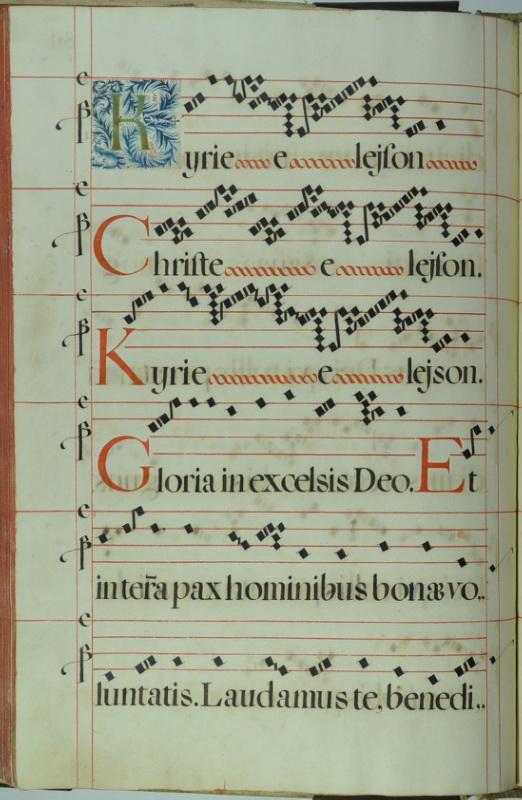 Kyrie e lejſon
Chriſte e lejſon.
Kyrie e lejson.
Gloria in excelsis Deo. Et
in terr̃a pax hominibus bonæ vo..
luntatis. Laudamus te, benedi..